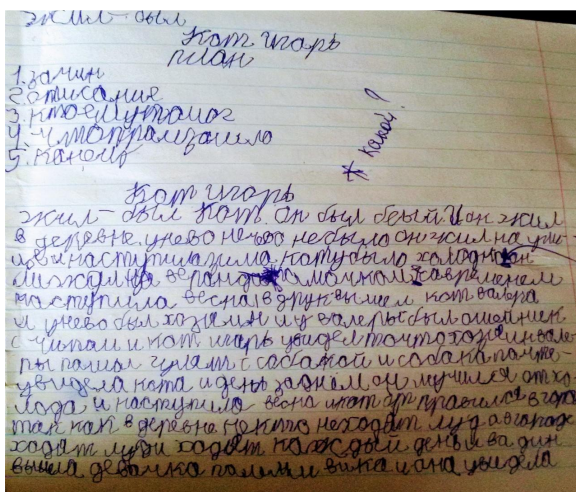 жил-был
Кот игарь
план
1. зачин
2. описание
3. ктоемупомог
4. Чтопраизашло
5. Канець
* какой?
Кот игарь
жил-был кот. он был беый. И он жил
в деревне. унево нечево небыло он жил на ули-
цеи наступила зима. коту было холодна он
лижал на веранде
наступила весна и вдрук вышел кот валера
и унево был хозяин и у валеры был ошейник
с чипам и кот игарь увидел то что хозяин вале-
ры пашол гулят с сабакой и сабака
увидела кота и день за днём он мучился от хо-
лода и наступила весна и кот отправился в горо
так как в деревне некто неходят луд а вгораде
ходят луди ходят каждый день и ва дин
вышла девачка па имени вика и ана увидела